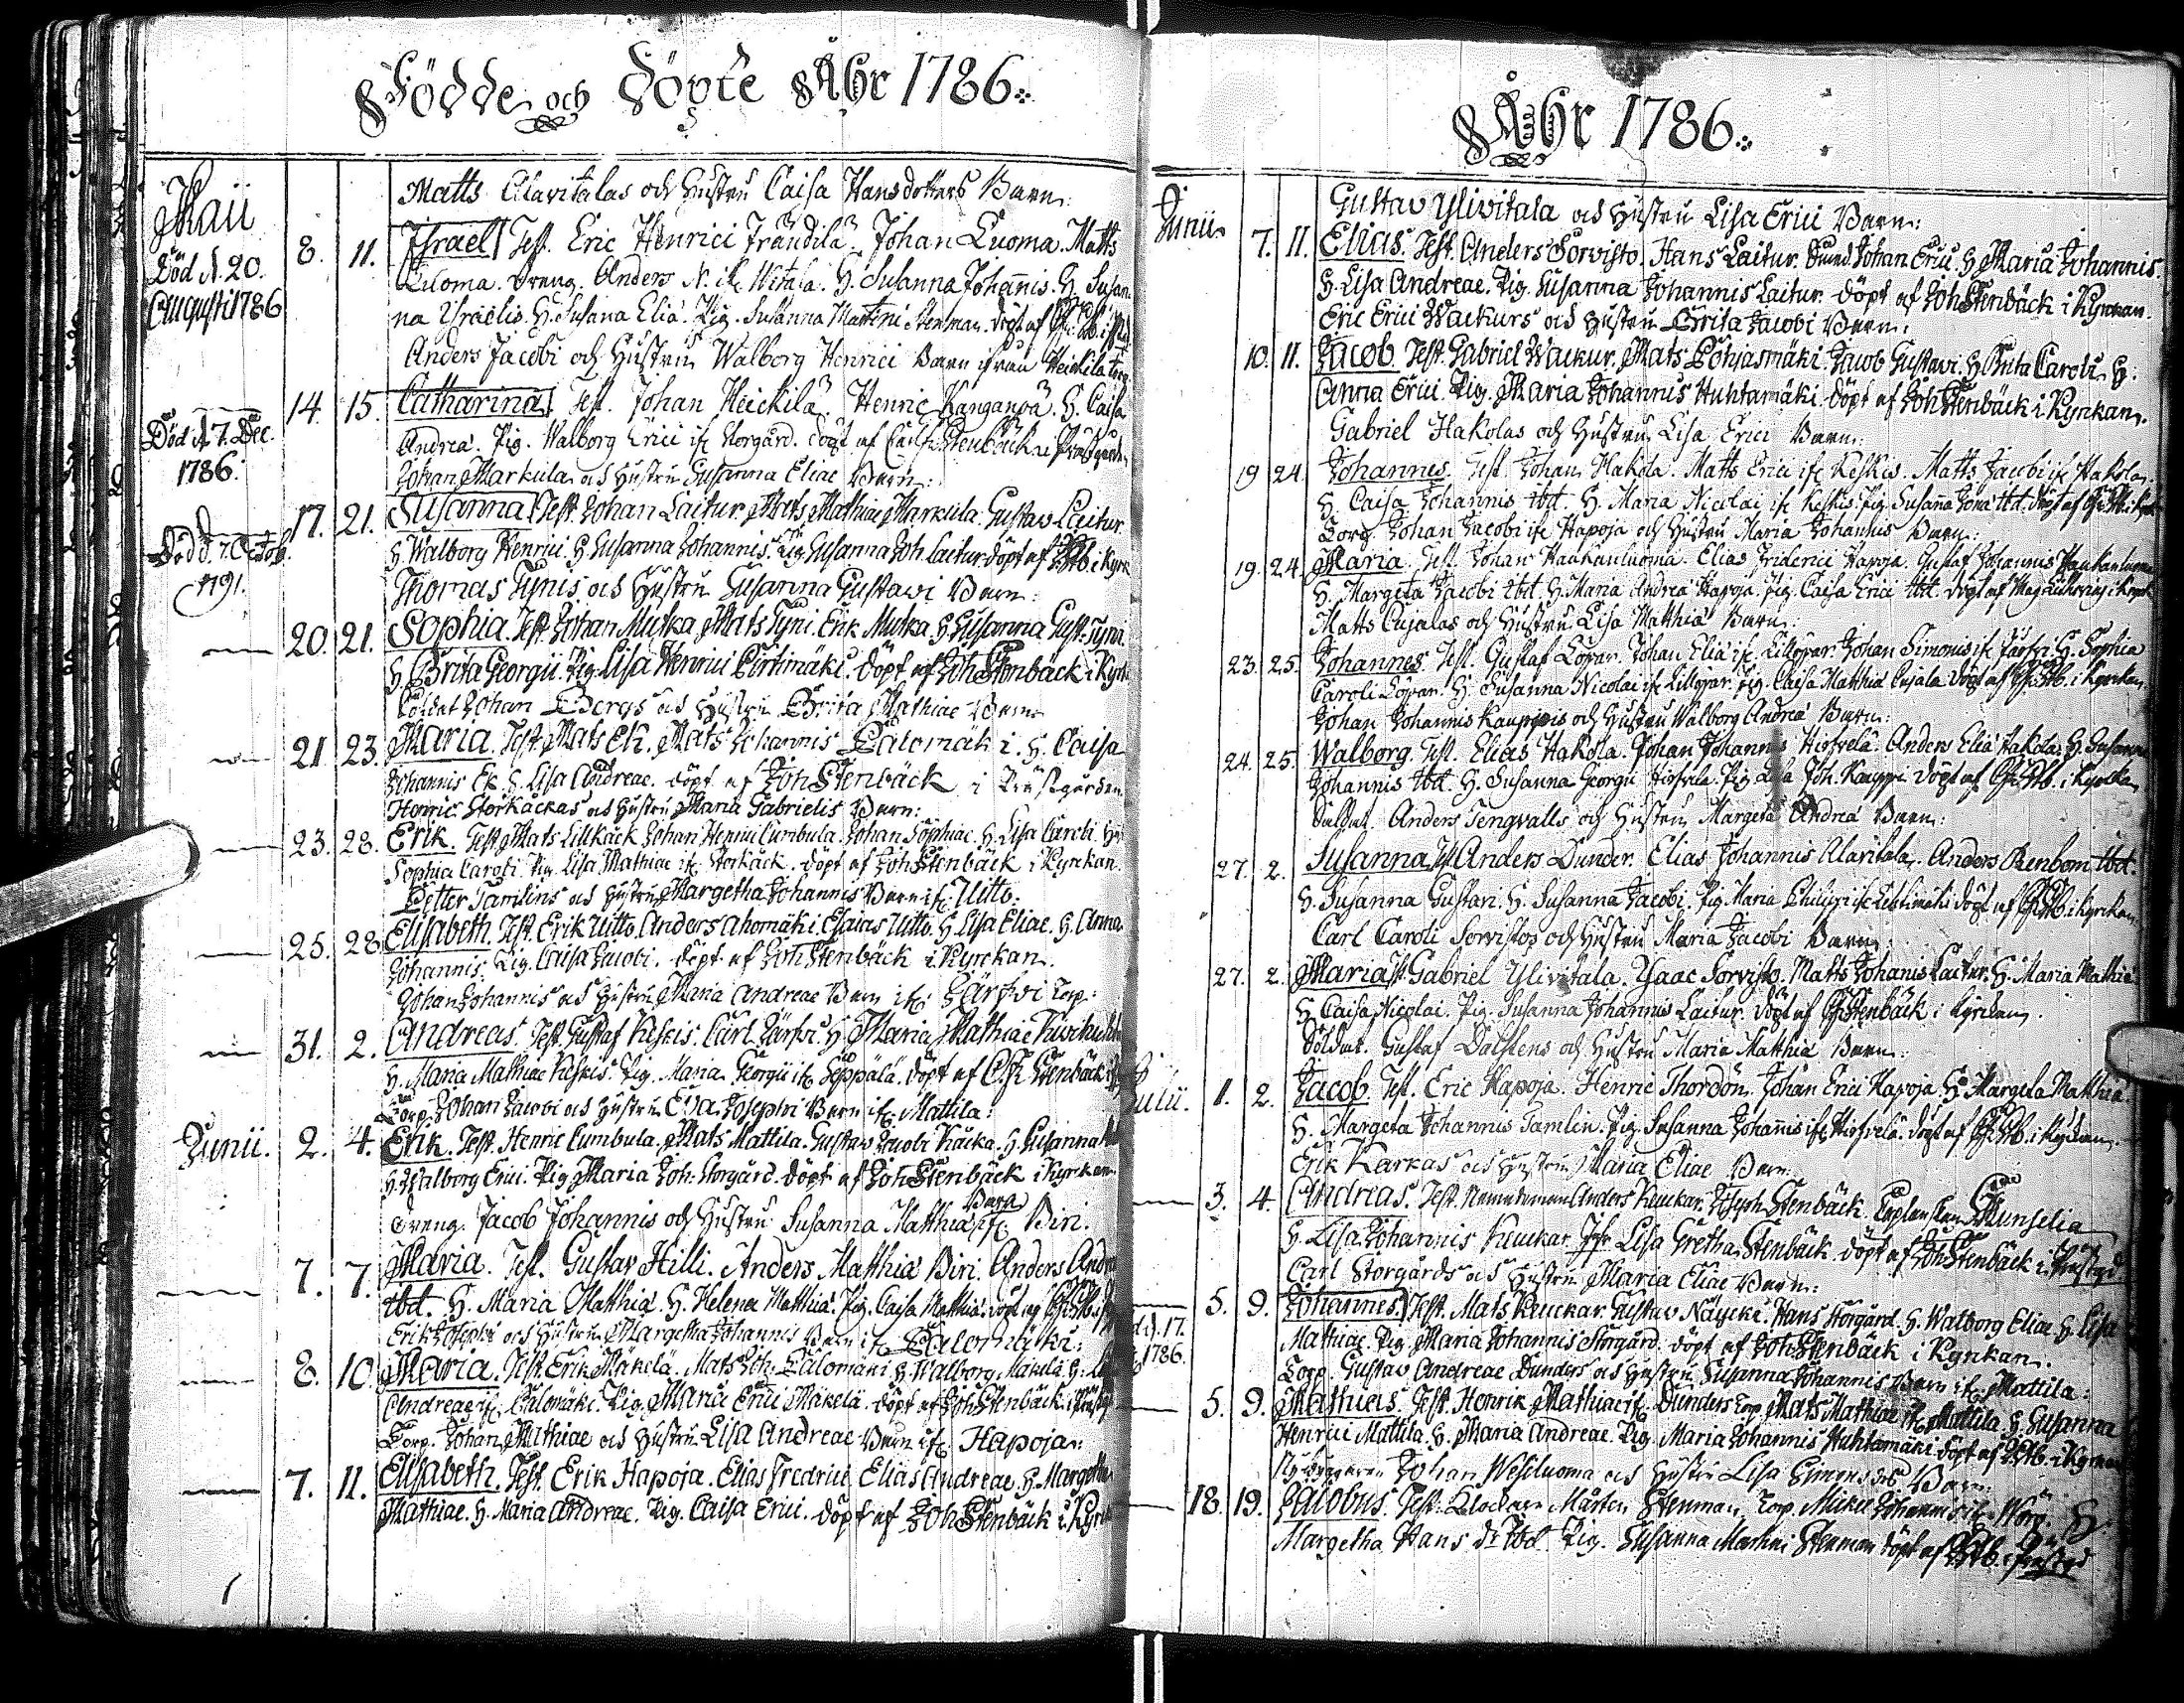 Födde och Döpte Åhr 1786.
Maii
Matts Alavitalas och Hustru Caisa Hansdotters Barn:
8. 11. Israel Test. Eric Henrici Frändilä. Johan Luoma. Matts
Död d. 20. Augusti 1786
Luoma. Dreng. Anders N. ifr. Witala. H. Susanna Johannis. H. Susan-
na Israelis. H. Susana Eliæ. Pig. Susanna Martini Stenman. döpt af
Anders Jacobi och Hustru Walborg Henrici Barn ifrån Heickilä
14. 15. Catharina Test. Johan Heickilä. Henric Kanganpä. H. Caisa
Död d. 7. Dec. 1786.
Andreæ. Pig. Walborg Erici ifr. Storgård. döpt af Stenbäck i Prästgården
Johan Markula och Hustru Susanna Eliae Barn:
17. 21. Susanna Test. Johan Laitur. Mats Mathiae Markula. Gustav Laitur.
Död d. 7. Octob. 1791.
H. Walborg Henrici. H. Susanna Johannis. Pig. Susanna Joh. Laitur döpt af J. Stb. i Kyrk
Thomas Tynis och Hustru Susanna Gustavi Barn
20. 21. Sophia. Test. Johan Mutka Mats Tyni. Erik Mutka H. Susanna Gust. Tyni
H. Brita Georgii. Pig. Lisa Henrici Pirtimäki. döpt af Joh Stenbäck i Kyrk
Soldat Johan Edbergs och Hustru Brita Mathiae Barn
21. 23. Maria. Test. Mats Ek. Mats Johannis Palomäki. H. Caisa
Johannis Ek. H. Lisa Andreae. döpt af Joh Stenbäck i Prästgården
Henric Storkäckas och Hustru Maria Gabrielis Barn:
23. 28. Erik. Test. Mats Lillkäck Johan Henrici Cumbula. Johan Sophiae. H. Lisa Caroli. H.
Sophia Caroli. Pig. Lisa Mathiae ifr. Storkäck. döpt af Joh Stenbäck i Kyrkan.
Petter Carolins och Hustru Margetha Johannis Barn ifr. Uitto:
25. 28. Elisabeth. Test. Erik Uitto. Anders Ahomäki. Esaias Uitto. H. Lisa Eliae. H. Anna
Johannis. Pig. Caisa Jacobi. döpt af Joh Stenbäck i Kyrckan.
Johan Johannis och Hustru Maria Andreae Barn ifr. Järfvi Torp:
31. 2. Andreas. Test. Gustaf Keskis. Carl Järfvi. H. Maria Mathiae
H. Maria Mathiae Keskis. Pig. Maria Georgii ifr. Seppälä. döpt af C. Fr Stenbäck
Torp. Johan Jacobi och Hustru Lisa Josephi Barn ifr. Mattila:
Junii. 2. 4. Erik. Test. Henric Cumbula. Mats Mattila. Gustav Jacobi Käcka. H. Susanna
H. Walborg Erici. Pig. Maria Joh. Storgård. döpt af Joh Stenbäck i Kyrkan
Dreng. Jacob Johannis och Hustru Susanna Matthiæ Barn ifr. Biri.
7. 7. Maria. Test. Gustav Hilli. Anders Matthiæ Biri. Anders
ibd. H. Maria Matthiæ. H. Helena Matthiæ. Pig. Caisa Matthiæ. döpt af
Erik Josephi och Hustru Margetha Johannis Barn ifr. Palomäki:
8. 10. Maria. Test. Erik Mäkelä. Mats Joh. Palomäki H. Walborg Mäkelä. H.
Andreae ifr. Palomäki. Pig. Maria Erici Mäkelä. döpt af Joh Stenbäck i
Torp. Johan Mathiae och Hustru Lisa Andreae Barn ifr. Hapoja:
7. 11. Elisabeth. Test. Erik Hapoja. Elias Fredrici Elias Andreae. H. Margetha
Mathiae. H. Maria Andreae. Pig. Caisa Erici. döpt af Joh Stenbäck i Kyrk
Åhr 1786.
Junii.
Gustav Ylivitala och Hustru Lisa Erici Barn:
7. 11. Elias. Test. Anders Sorvisto. Hans Laitur. Johan Erici. H. Maria Johannis.
H. Lisa Andreae. Pig. Susanna Johannis Laitur. döpt af Joh Stenbäck i Kyrkan.
Eric Erici Wackurs och Hustru Brita Jacobi Barn:
10. 11. Jacob. Test. Gabriel Wackur. Mats Pohjasmäki. Jacob Gustavi. H. Brita Caroli. H.
Anna Erici. Pig. Maria Johannis Huhtamäki. döpt af Joh Stenbäck i Kyrkan.
Gabriel Hakolas och Hustru Lisa Erici Barn:
19 24. Johannes. Test. Johan Hakola. Matts Erici ifr. Keskis. Matts Jacobi ifr. Hakola.
H. Caisa Johannis ibd. H. Maria Nicolai ifr Keskis. Pig. Susanna ibd. döpt af
Torp. Johan Jacobi ifr Hapoja och Hustru Maria Johannis Barn:
19. 24. Maria. Test. Johan Haukanluoma. Elias Friderici Hapoja. Gustaf Johannis Haukanluoma
H. Margeta Jacobi ibd. H. Maria Andreæ Hapoja. Pig. Caisa Erici ibd. döpt af
Matts Pujalas och Hustru Lisa Matthiæ Barn:
23. 25. Johannes. Test. Gustaf Lopar. Johan Eliæ ifr. Lillopar. Johan Simonis ifr Järfvi. H. Sophia
Caroli Lopar. H. Susanna Nicolai ifr Lillopar. Pig. Caisa Matthiæ Pujala döpt af Stb. i Kyrckan.
Johan Johannis Kauppis och Hustru Walborg Andreæ Barn:
24. 25. Walborg. Test. Elias Hakola. Johan Johannis Hirfvelä. Anders Eliæ Hakola. H. Susanna
Johannis ibd. H. Susanna Georgii Hirfvelä. Pig. Lisa Joh. Kauppi. döpt af Stb. i Kyrckan
Soldat. Anders Tengvalls och Hustru Margeta Andreæ Barn:
27. 2. Susanna. Test. Anders Dunder. Elias Johannis Alavitala. Anders Renbom ibd.
H. Susanna Gustavi. H. Susanna Jacobi. Pig. Maria Philippi ifr. döpt af Stb. i Kyrckan
Carl Caroli Sorvistos och Hustru Maria Jacobi Barn:
27. 2. Maria. Test. Gabriel Ylivitala. Ysaac Sorvisto. Matts Johanis Laitur. H. Maria Mathiæ
H. Caisa Nicolai. Pig. Susanna Johannis Laitur. döpt af Stenbäck i Kyrckan.
Soldat. Gustaf Dalstens och Hustru Maria Matthiæ Barn:
Julii. 1. 2. Jacob. Test. Eric Hapoja. Henric Thordön. Johan Erici Hapoja. H. Margeta Matthiæ.
H. Margeta Johannis Tamlin. Pig. Susanna Johanis ifr Hirfvelä. döpt af Stb. i Kyrckan.
Erik Karkas och Hustru Maria Eliae Barn:
3. 4. Andreas. Test. Nämndeman Anders Keuckar. Joseph Stenbäck.
H. Lisa Johannis Keuckar. Jfr. Lisa Gretha Stenbäck. döpt af Joh Stenbäck i
Carl Storgårds och Hustru Maria Eliae Barn:
5. 9. Johannes. Test. Mats Keuckar Gustav Näycki. Hans Storgård. H. Walborg Eliae. H. Lisa
d. 17. 1786.
Mathiae. Pig. Maria Johannis Storgård. döpt af Joh Stenbäck i Kyrkan.
Torp. Gustav Andreae Dunders och Hustru Susanna Johannis Barn ifr. Mattila:
5. 9. Mathias. Test. Henrik Mathiae ifr. Dunders Torp. Mats Mathiae ifr. Mattila. H. Susanna
Henrici Mattila. H. Maria Andreae. Pig. Maria Johannis Huhtamäki. döpt af J. Stb. i Kyrkan
Nybyggaren Johan Wesiluoma och Hustru Lisa Simons dr. Barn:
18. 19. Jacobus. Test. Klockaren Mårten Stenman, Torp. Mickel Johannis ifr. H.
Margetha Hans dr ibd. Pig. Susanna Martini Stenman döpt af Stb. i